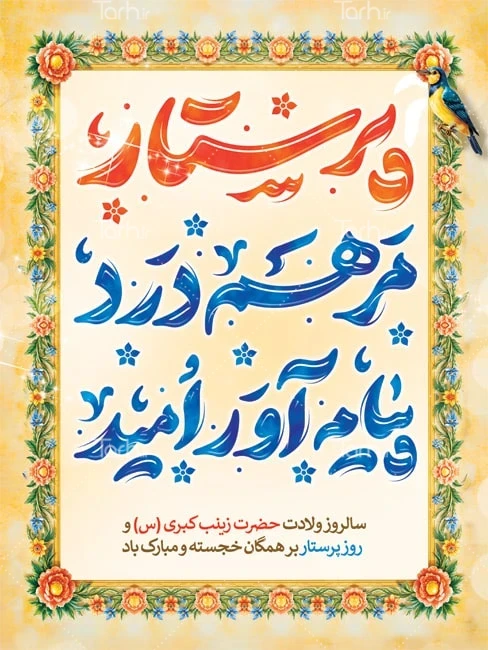 Tarh.ir
پرستار،
مرهم درد،
پیام آور امید
سالروز ولادت حضرت زینب کبری (س) و
روز پرستار بر همگان خجسته و مبارک باد